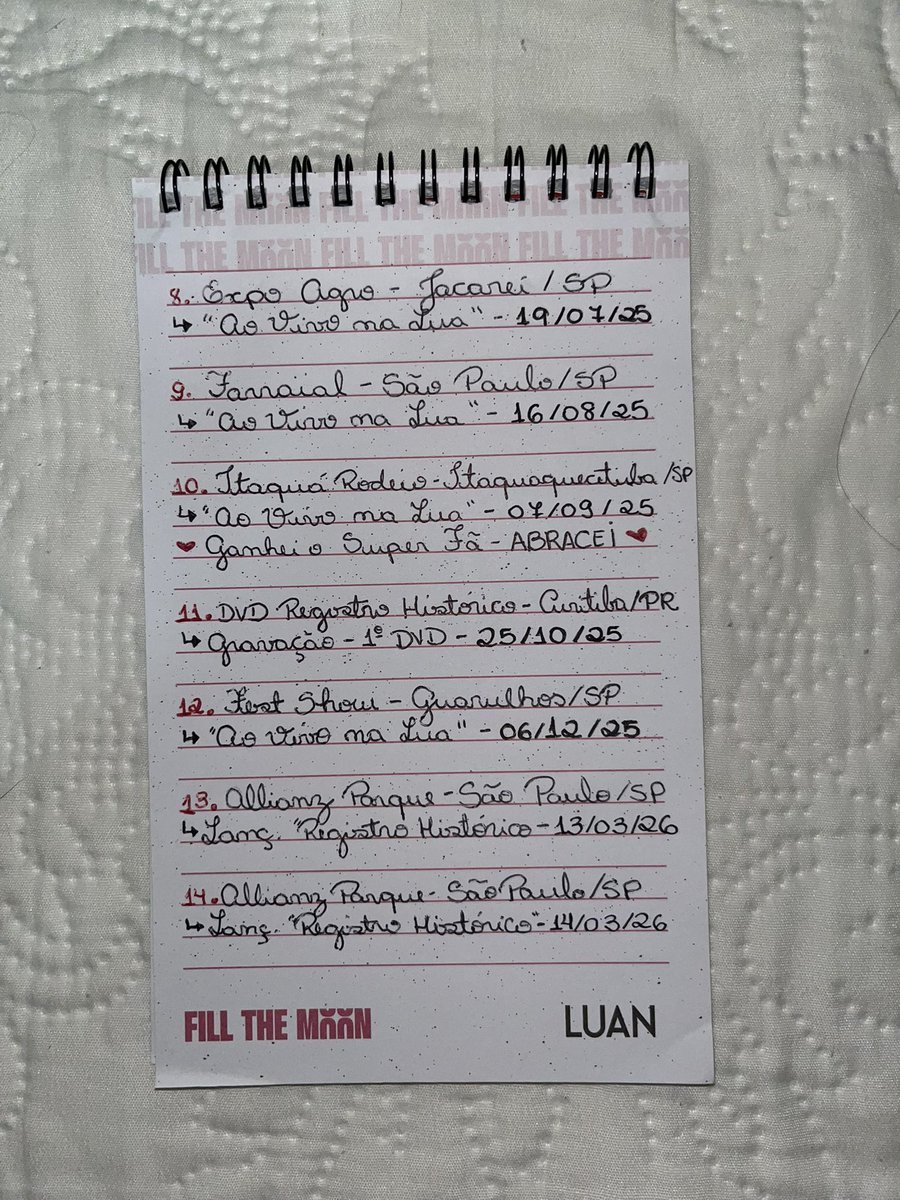 FILL THE MOON FILL THE MOON FILL THE MOON
FILL THE MOON FILL THE MOON FILL THE MOON
8. Expo Agro - Jacareí / SP
↳ "Ao Vivo na Lua" - 19/07/25
9. Farraial - São Paulo/SP
↳ "Ao Vivo na Lua" - 16/08/25
10. Itaquá Rodeio - Itaquaquecetuba/SP
↳ "Ao Vivo na Lua" - 07/09/25
♥ Ganhei o Super Fã - ABRACEI ♥
11. DVD Registro Histórico - Curitiba/PR
↳ Gravação - 1º DVD - 25/10/25
12. Fest Show - Guarulhos/SP
↳ "Ao Vivo na Lua" - 06/12/25
13. Allianz Parque - São Paulo/SP
↳ Lanç. "Registro Histórico - 13/03/26
14. Allianz Parque - São Paulo/SP
↳ Lanç. "Registro Histórico" - 14/03/26
FILL THE MOON LUAN